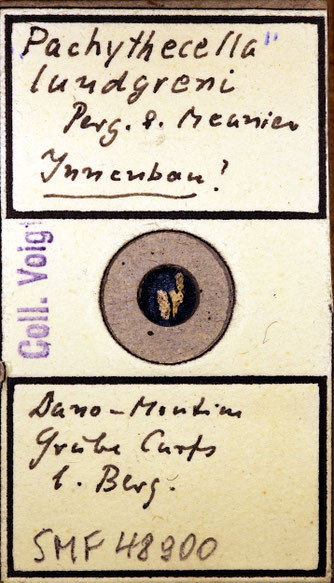 "Pachythecella"
lundgreni
Perg. & Meunier
Innenbau!
Coll. Voigt
Dano-Montien
Grube Curfs
b. Berg.
SMF 48900